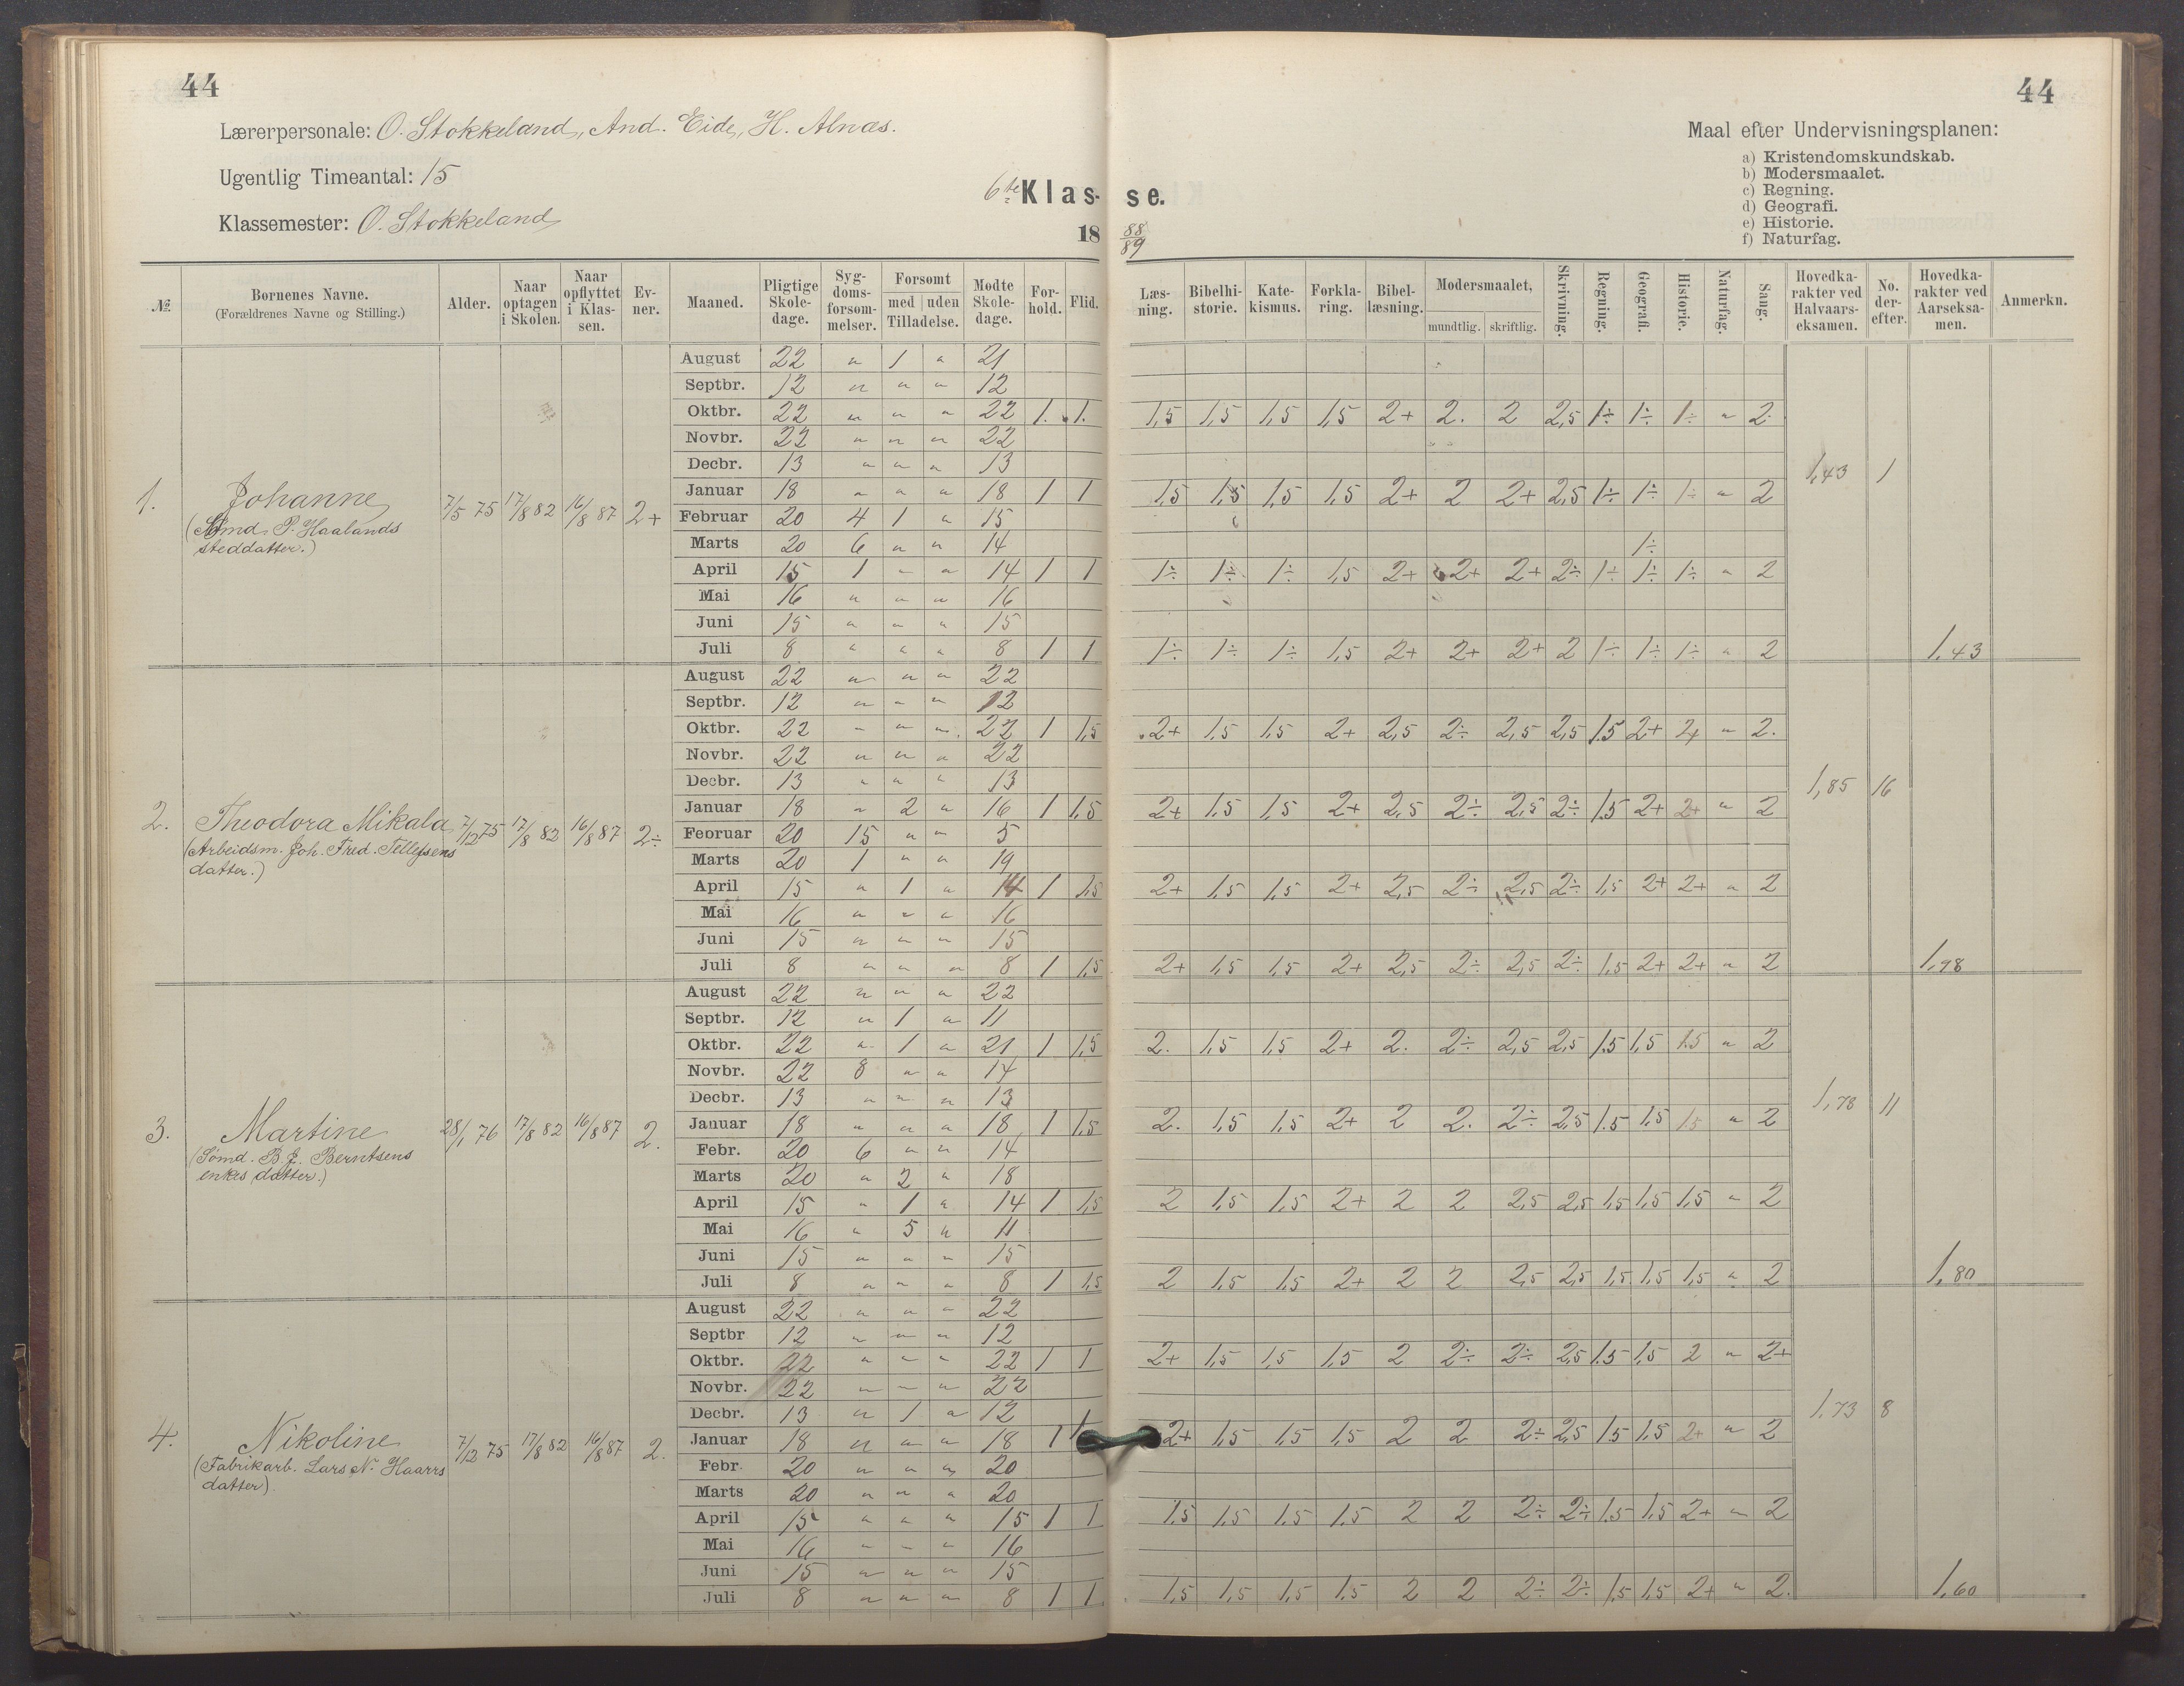 44
44
Lærerpersonale: O. Stokkeland, And. Eide, H. Alnæs.
Maal efter Undervisningsplanen:
a) Kristendomskundskab.
b) Modersmaalet.
c) Regning.
d) Geografi.
e) Historie.
f) Naturfag.
Ugentlig Timeantal: 15
6te Klas- se.
Klassemester: O. Stokkeland
18 88/89
№. Børnenes Navne. (Forældrenes Navne og Stilling.) Alder. Naar optagen i Skolen. Naar opflyttet i Klassen. Evner. Maaned. Pligtige Skoledage. Sygdomsforsømmelser. Forsømt med uden Tilladelse. Mødte Skoledage. Forhold. Flid. Læsning. Bibelhistorie. Katekismus. Forklaring. Bibellæsning. Modersmaalet, mundtlig. skriftlig. Skrivning. Regning. Geografi. Historie. Naturfag. Sang. Hovedkarakter ved Halvaarseksamen. No. derefter. Hovedkarakter ved Aarseksamen. Anmerkn.
1. Johanne
(Sømd. P. Haalands
steddatter.)
7/5 75 17/8 82 16/8 87 2+
August 22 " 1 " 21
Septbr. 12 " " " 12
Oktbr. 22 " " " 22 1. 1. 1,5 1,5 1,5 1,5 2+ 2. 2 2,5 1÷ 1÷ 1÷ " 2
Novbr. 22 " " " 22
Decbr. 13 " " " 13
1,43 1
Januar 18 " " " 18 1 1 1,5 1,5 1,5 1,5 2+ 2 2+ 2,5 1÷ 1÷ 1÷ " 2
Februar 20 4 1 " 15
Marts 20 6 " " 14 1÷
April 15 1 " " 14 1 1 1÷ 1÷ 1÷ 1,5 2+ 2+ 2+ 2÷ 1÷ 1÷ 1÷ " 2
Mai 16 " " " 16
Juni 15 " " " 15
Juli 8 " " " 8 1 1 1÷ 1÷ 1÷ 1,5 2+ 2+ 2+ 2 1÷ 1÷ 1÷ " 2 1,43
2. Theodora Mikala
(Arbeidsm. Joh. Fred. Tellefsens
datter.)
7/12 75 17/8 82 16/8 87 2÷
August 22 " " " 22
Septbr. 12 " " " 12
Oktbr. 22 " " " 22 1 1,5 2+ 1,5 1,5 2+ 2,5 2÷ 2,5 2,5 1,5 2+ 2+ " 2.
Novbr. 22 " " " 22
Decbr. 13 " " " 13
1,85 16
Januar 18 " 2 " 16 1 1,5 2+ 1,5 1,5 2+ 2,5 2÷ 2,5 2÷ 1,5 2+ 2+ " 2
Feoruar 20 15 " " 5
Marts 20 1 " " 19
April 15 " 1 " 14 1 1,5 2+ 1,5 1,5 2+ 2,5 2÷ 2,5 2÷ 1,5 2+ 2+ " 2
Mai 16 " " " 16
Juni 15 " " " 15
Juli 8 " " " 8 1 1,5 2+ 1,5 1,5 2+ 2,5 2÷ 2,5 2÷ 1,5 2+ 2+ " 2 1,98
3. Martine
(Sømd. B. J. Berntsens
enkes datter.)
28/1 76 17/8 82 16/8 87 2.
August 22 " " " 22
Septbr. 12 " 1 " 11
Oktbr. 22 " 1 " 21 1 1,5 2. 1,5 1,5 2+ 2. 2÷ 2,5 2,5 1,5 1,5 1,5 " 2
Novbr. 22 8 " " 14
Decbr. 13 " " " 13
1,78 11
Januar 18 " " " 18 1 1,5 2. 1,5 1,5 2+ 2 2. 2÷ 2,5 1,5 1,5 1,5 " 2
Febr. 20 6 " " 14
Marts 20 " 2 " 18
April 15 " 1 " 14 1 1,5 2 1,5 1,5 2+ 2 2 2,5 2,5 1,5 1,5 1,5 " 2
Mai 16 " 5 " 11
Juni 15 " " " 15
Juli 8 " " " 8 1 1,5 2 1,5 1,5 2+ 2 2 2,5 2,5 1,5 1,5 1,5 " 2 1,80
4. Nikoline
(Fabrikarb. Lars N. Haarrs
datter)
7/12 75 17/8 82 16/8 87 2.
August 22 " " " 22
Septbr 12 " " " 12
Oktbr. 22 " " " 22 1 1 2+ 1,5 1,5 1,5 2 2÷ 2÷ 2,5 1,5 1,5 2 " 2+
Novbr. 22 " " " 22
Decbr. 13 " 1 " 12
1,73 8
Januar 18 " " " 18 1 1 2+ 1,5 1,5 1,5 2 2 2÷ 2,5 1,5 1,5 2+ " 2
Febr 20 " " " 20
Marts 20 " " " 20
April 15 " " " 15 1 1 1,5 1,5 1,5 1,5 2 2 2÷ 2÷ 1,5 1,5 2+ " 2
Mai 16 " " " 16
Juni 15 " " " 15
Juli 8 " " " 8 1 1 1,5 1,5 1,5 1,5 2 2 2÷ 2÷ 1,5 1,5 2+ " 2. 1,60